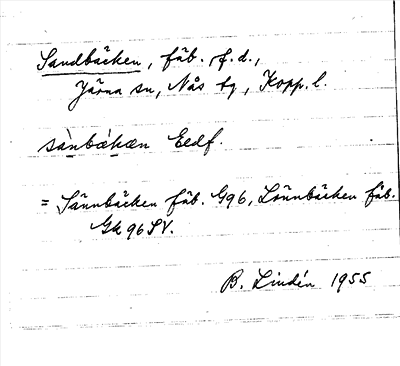 Sandbäcken, fäb. f.d.,
Järna sn, Nås tg, Kopp. l.
sànbɛ́kæn Eedf.
= Sännbäcken fäb. G96, Lönnbäcken fäb.
Gk 96 SV.
B. Lindén 1955